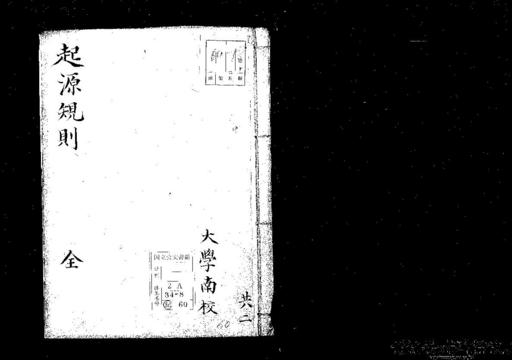 起源規則
全
大學南校
共二
国立公文書館
2A
34-8
60